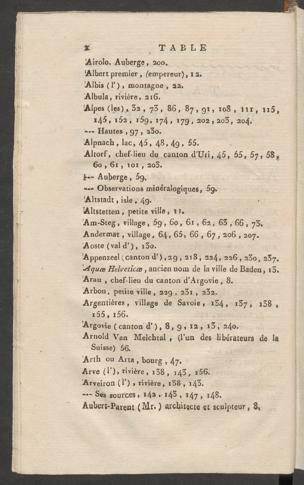 2 TABLE
Airolo. Auberge, 200.
Albert premier, (empereur), 12.
Albis (l'), montagne, 22.
Albula, rivière, 216.
Alpes (les), 32, 73, 86, 87, 91, 108, 111, 115,
145, 152, 159, 174, 179, 202, 203, 204.
--- Hautes, 97, 230.
Alpnach, lac, 45, 48, 49, 55.
Altorf, chef-lieu du canton d'Uri, 45, 55, 57, 58,
60, 61, 101, 203.
--- Auberge, 59.
--- Observations minéralogiques, 59.
Altstadt, isle, 49.
Altstetten, petite ville, 11.
Am-Steg, village, 59, 60, 61, 62, 63, 66, 73.
Andermat, village, 64, 65, 66, 67, 206, 207.
Aoste (val d'), 130.
Appenzeel (canton d'), 29, 218, 224, 226, 230, 237.
Aquæ Helveticæ, ancien nom de la ville de Baden, 13.
Arau, chef-lieu du canton d'Argovie, 8.
Arbon, petite ville, 229, 231, 232.
Argentières, village de Savoie, 134, 137, 138
155, 156.
Argovie (canton d'), 8, 9, 12, 13, 240.
Arnold Van Melchtal, (l'un des libérateurs de la
Suisse) 56.
Arth ou Arts, bourg, 47.
Arve (l'), rivière, 138, 143, 156.
Arveiron (l'), rivière, 138, 143.
--- Ses sources, 142, 143, 147, 148.
Aubert-Parent (Mr.) architecte et sculpteur, 8,